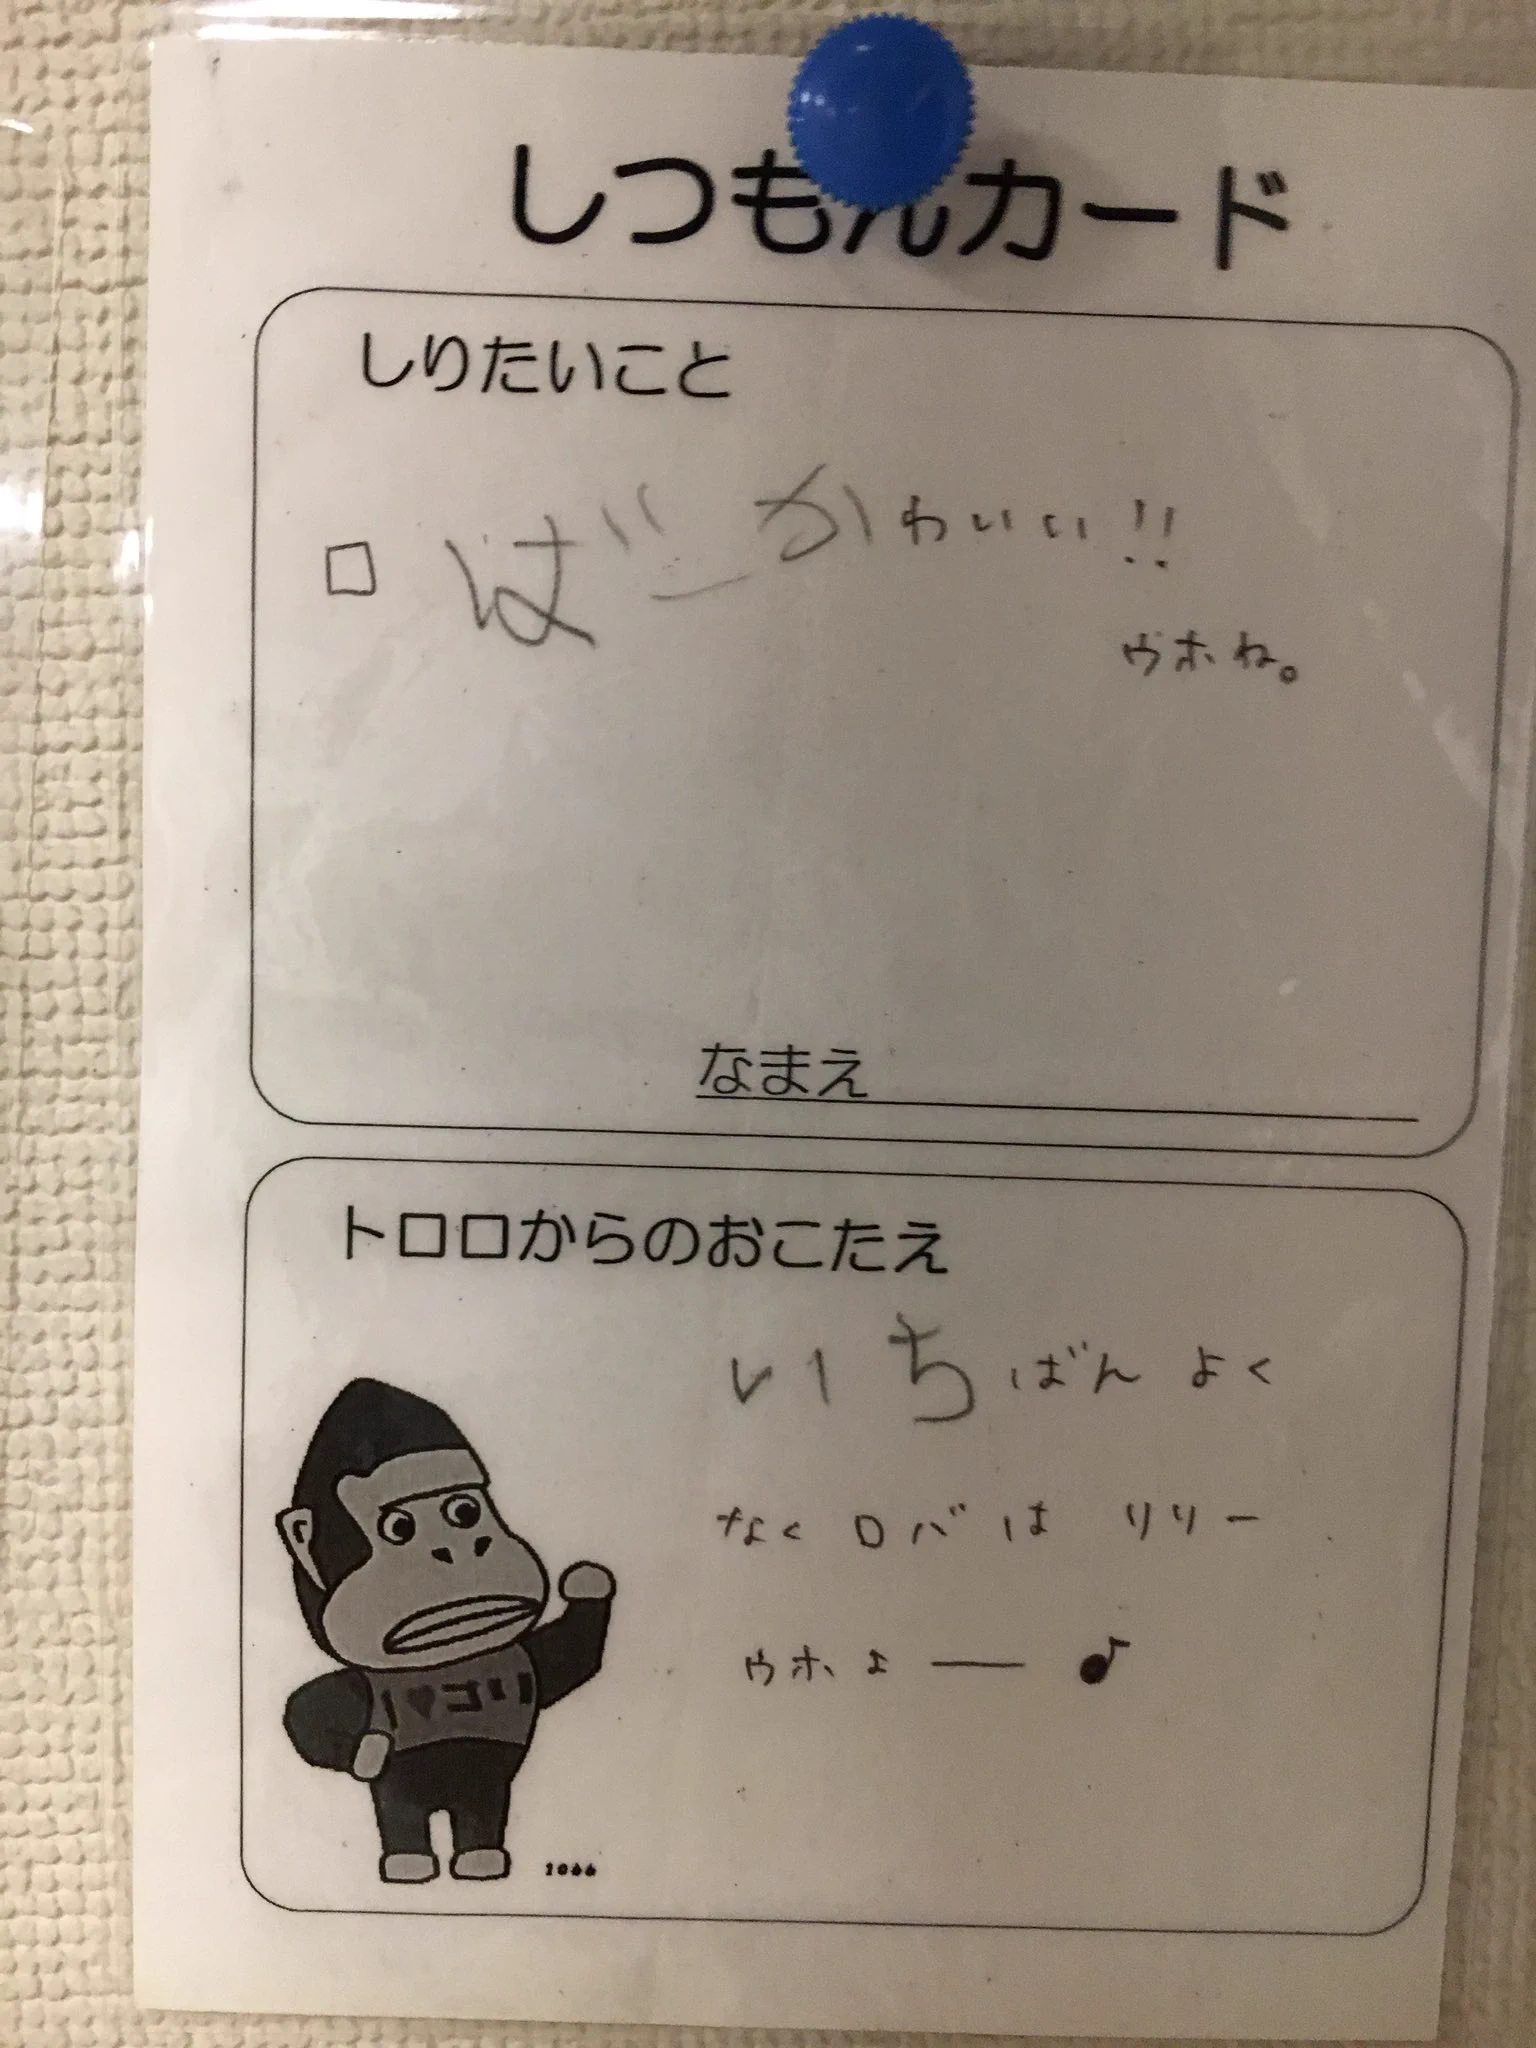 しつもんカード
しりたいこと
ロばーかわいい!!
ウホね。
なまえ
トロロからのおこたえ
いちばん よく
なく ロバは リリー
ウホよー♪
I♥ゴリラ
1066